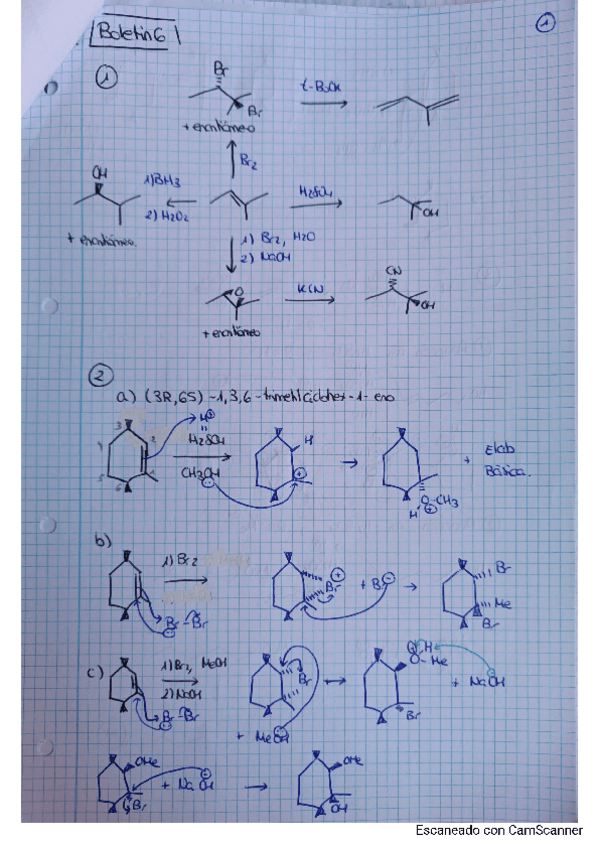 Boletín 6
1
1
Br
Br
+ enantiómero
t-BuOK
Br2
OH
1) BH3
2) H2O2
+ enantiómero.
H2SO4
OH
1) Br2, H2O
2) NaOH
O
+ enantiómero
KCN
CN
OH
2
a) (3R,6S)-1,3,6-trimetilciclohex-1-eno
3
4
2
5
1
6
H+
H2SO4
CH3OH
H
+
O-CH3
H
+
+ Elab
Básica.
b)
1) Br2
Br-Br
Br+
+ Br-
Br
Me
Br
c)
1) Br2, MeOH
2) NaOH
Br-Br
Br
+ MeOH
H
O-Me
Br
+ NaOH
OMe
Br
+ NaOH
OMe
OH
Escaneado con CamScanner